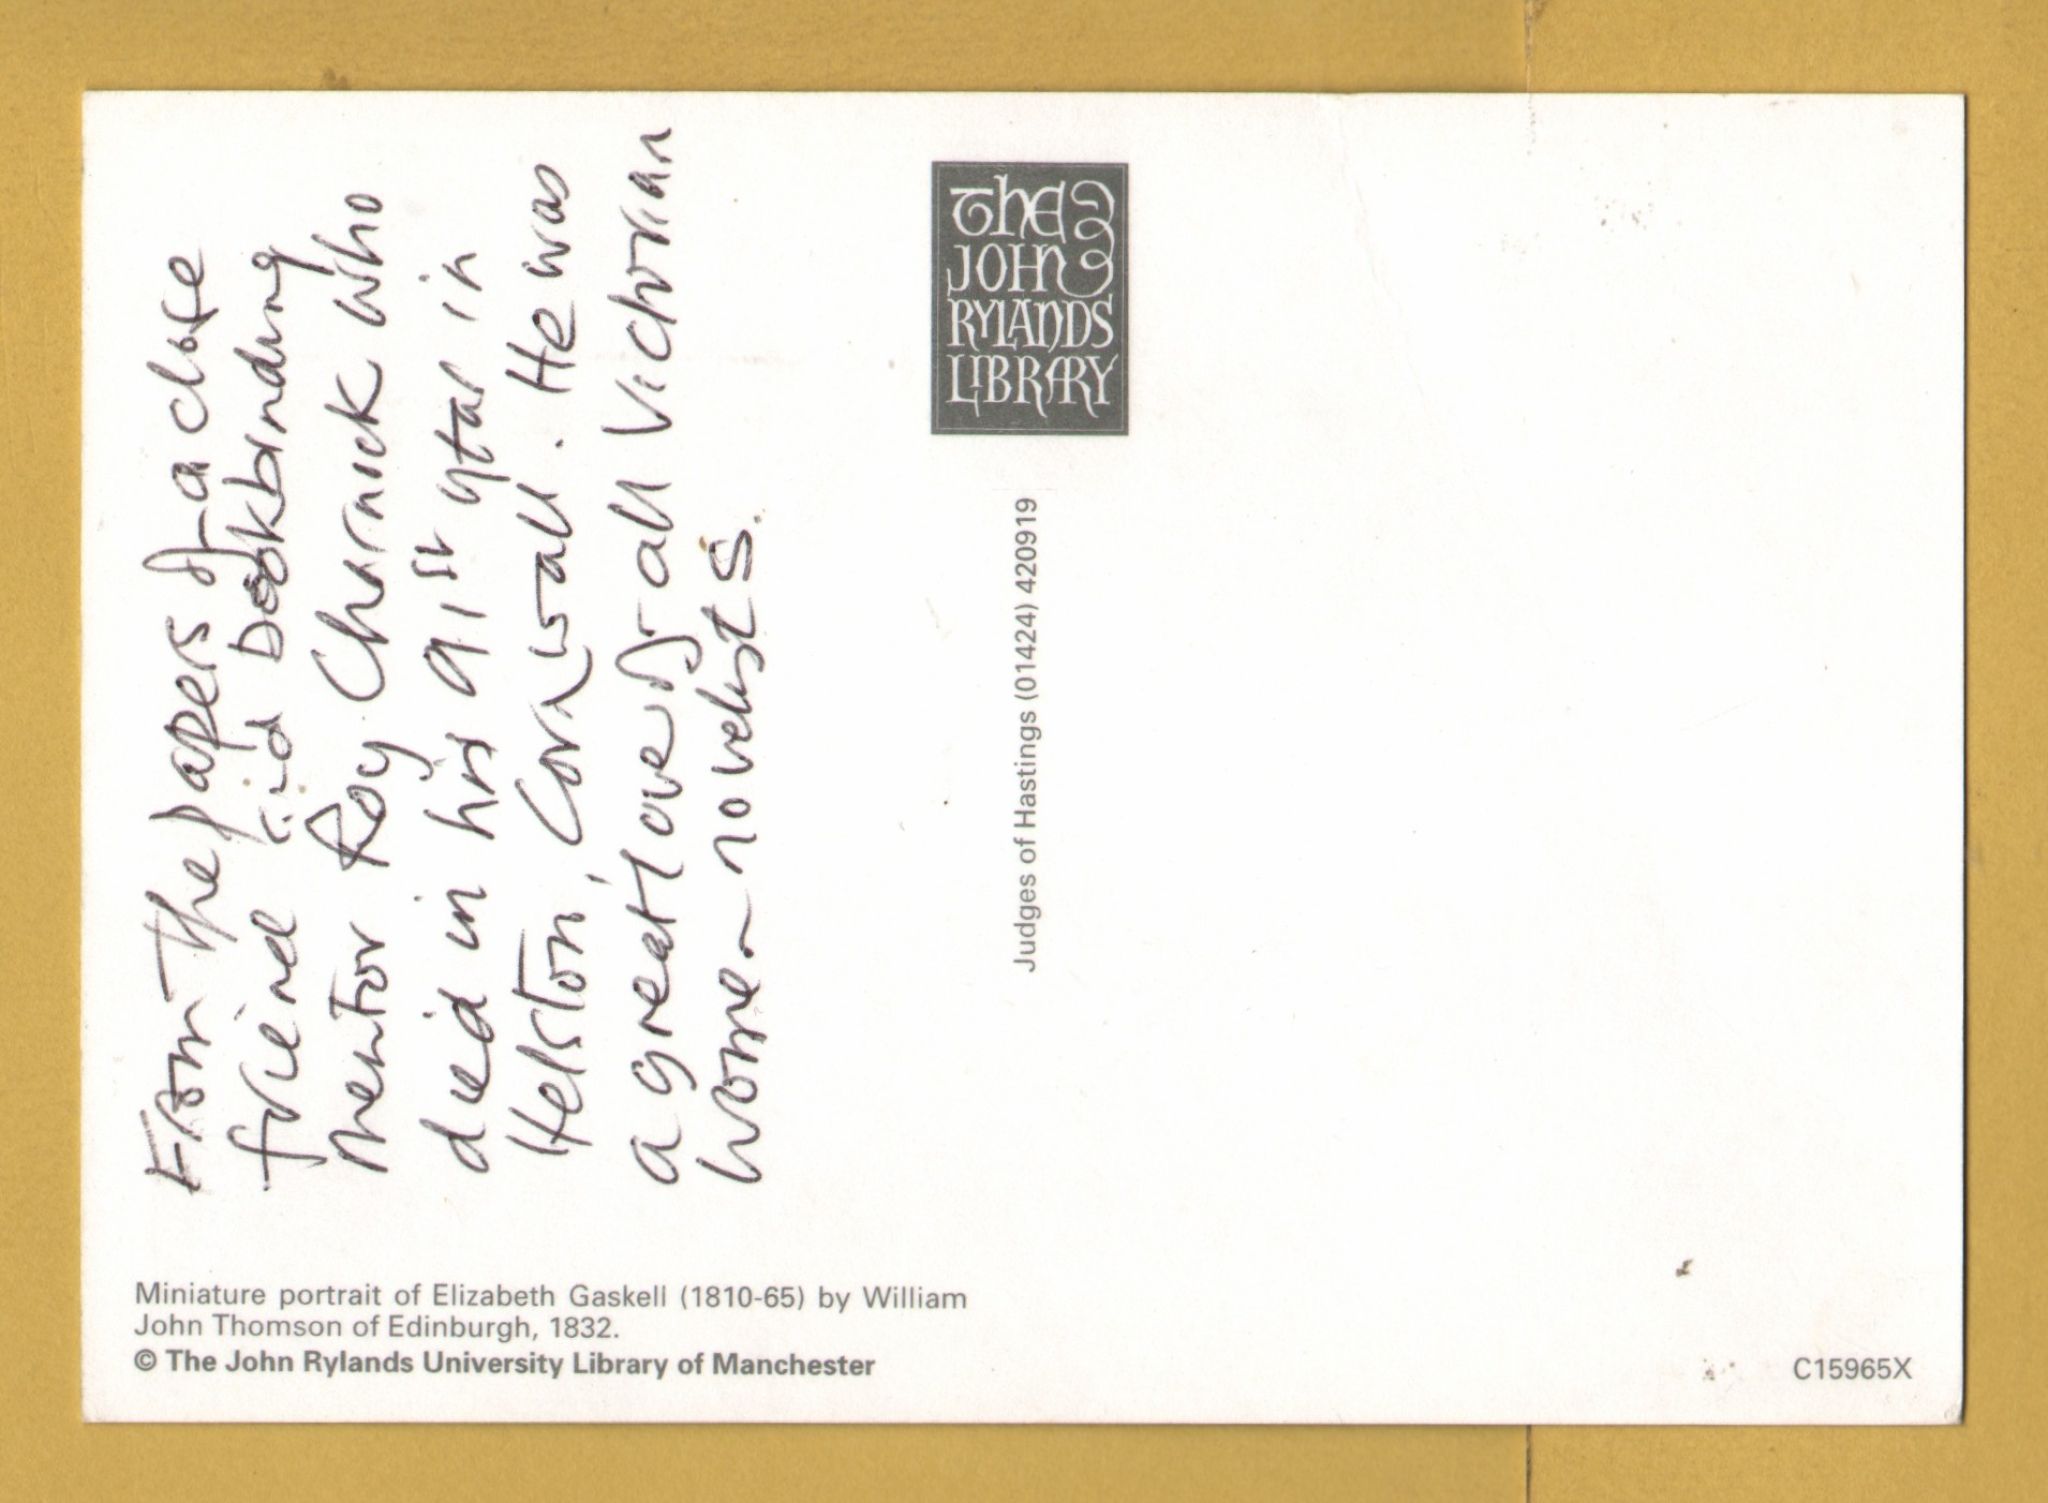 From the papers of a close
friend and bookbinding
mentor Roy Charnick who
died in his 91st year in
Helston, Cornwall. He was
a great lover of all Victorian
women novelists.
The
JOHN
RYLANDS
LIBRARY
Judges of Hastings (01424) 420919
Miniature portrait of Elizabeth Gaskell (1810-65) by William
John Thomson of Edinburgh, 1832.
© The John Rylands University Library of Manchester
C15965X